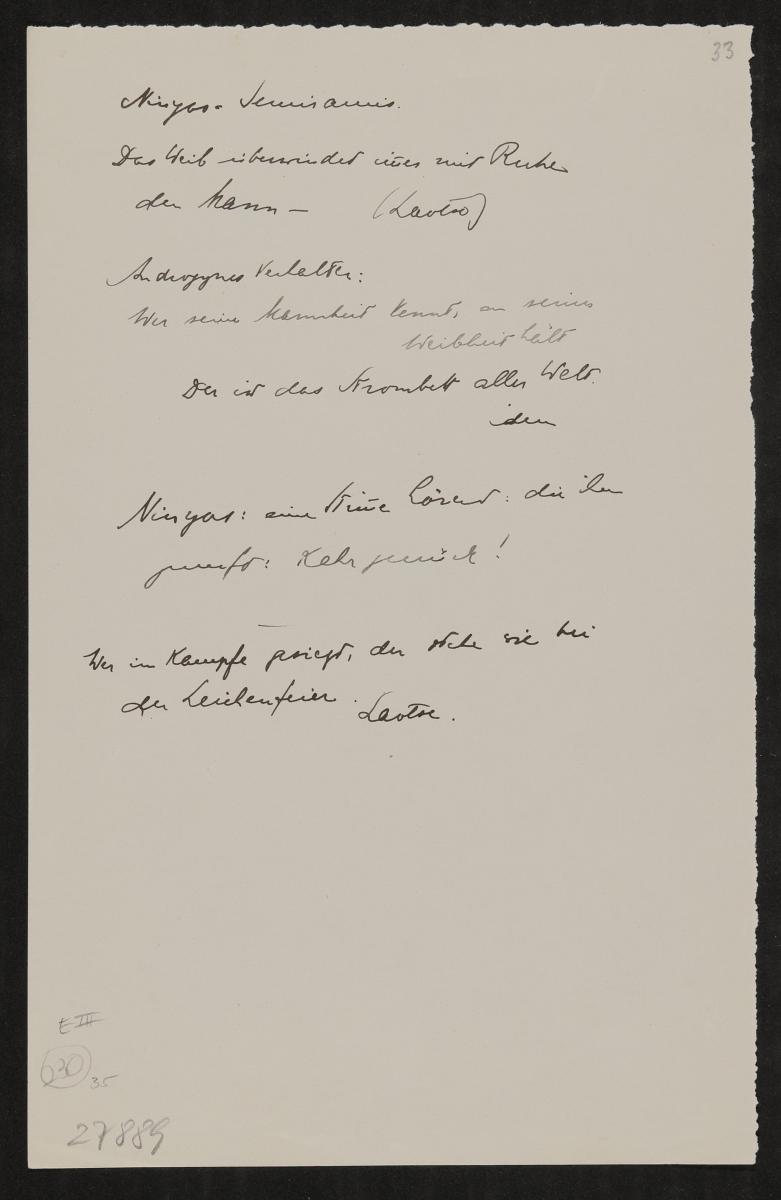 33
Ninyas - Semiramis.
Das Weib überwindet im̅er mit Ruhe
den Mann – (Laotse)
Androgynes Verhalten:
Wer seine Mannheit kennt, an seiner
Weibheit hält
Der ist das Strombett aller Welt.
den
Ninyas: eine Stim̅e hörend: die ihm
zuruft: Kehr zurück!
Wer im Kampfe gesiegt, der stehe wie bei
der Leichenfeier. Laotse.
E III
630
35
27889